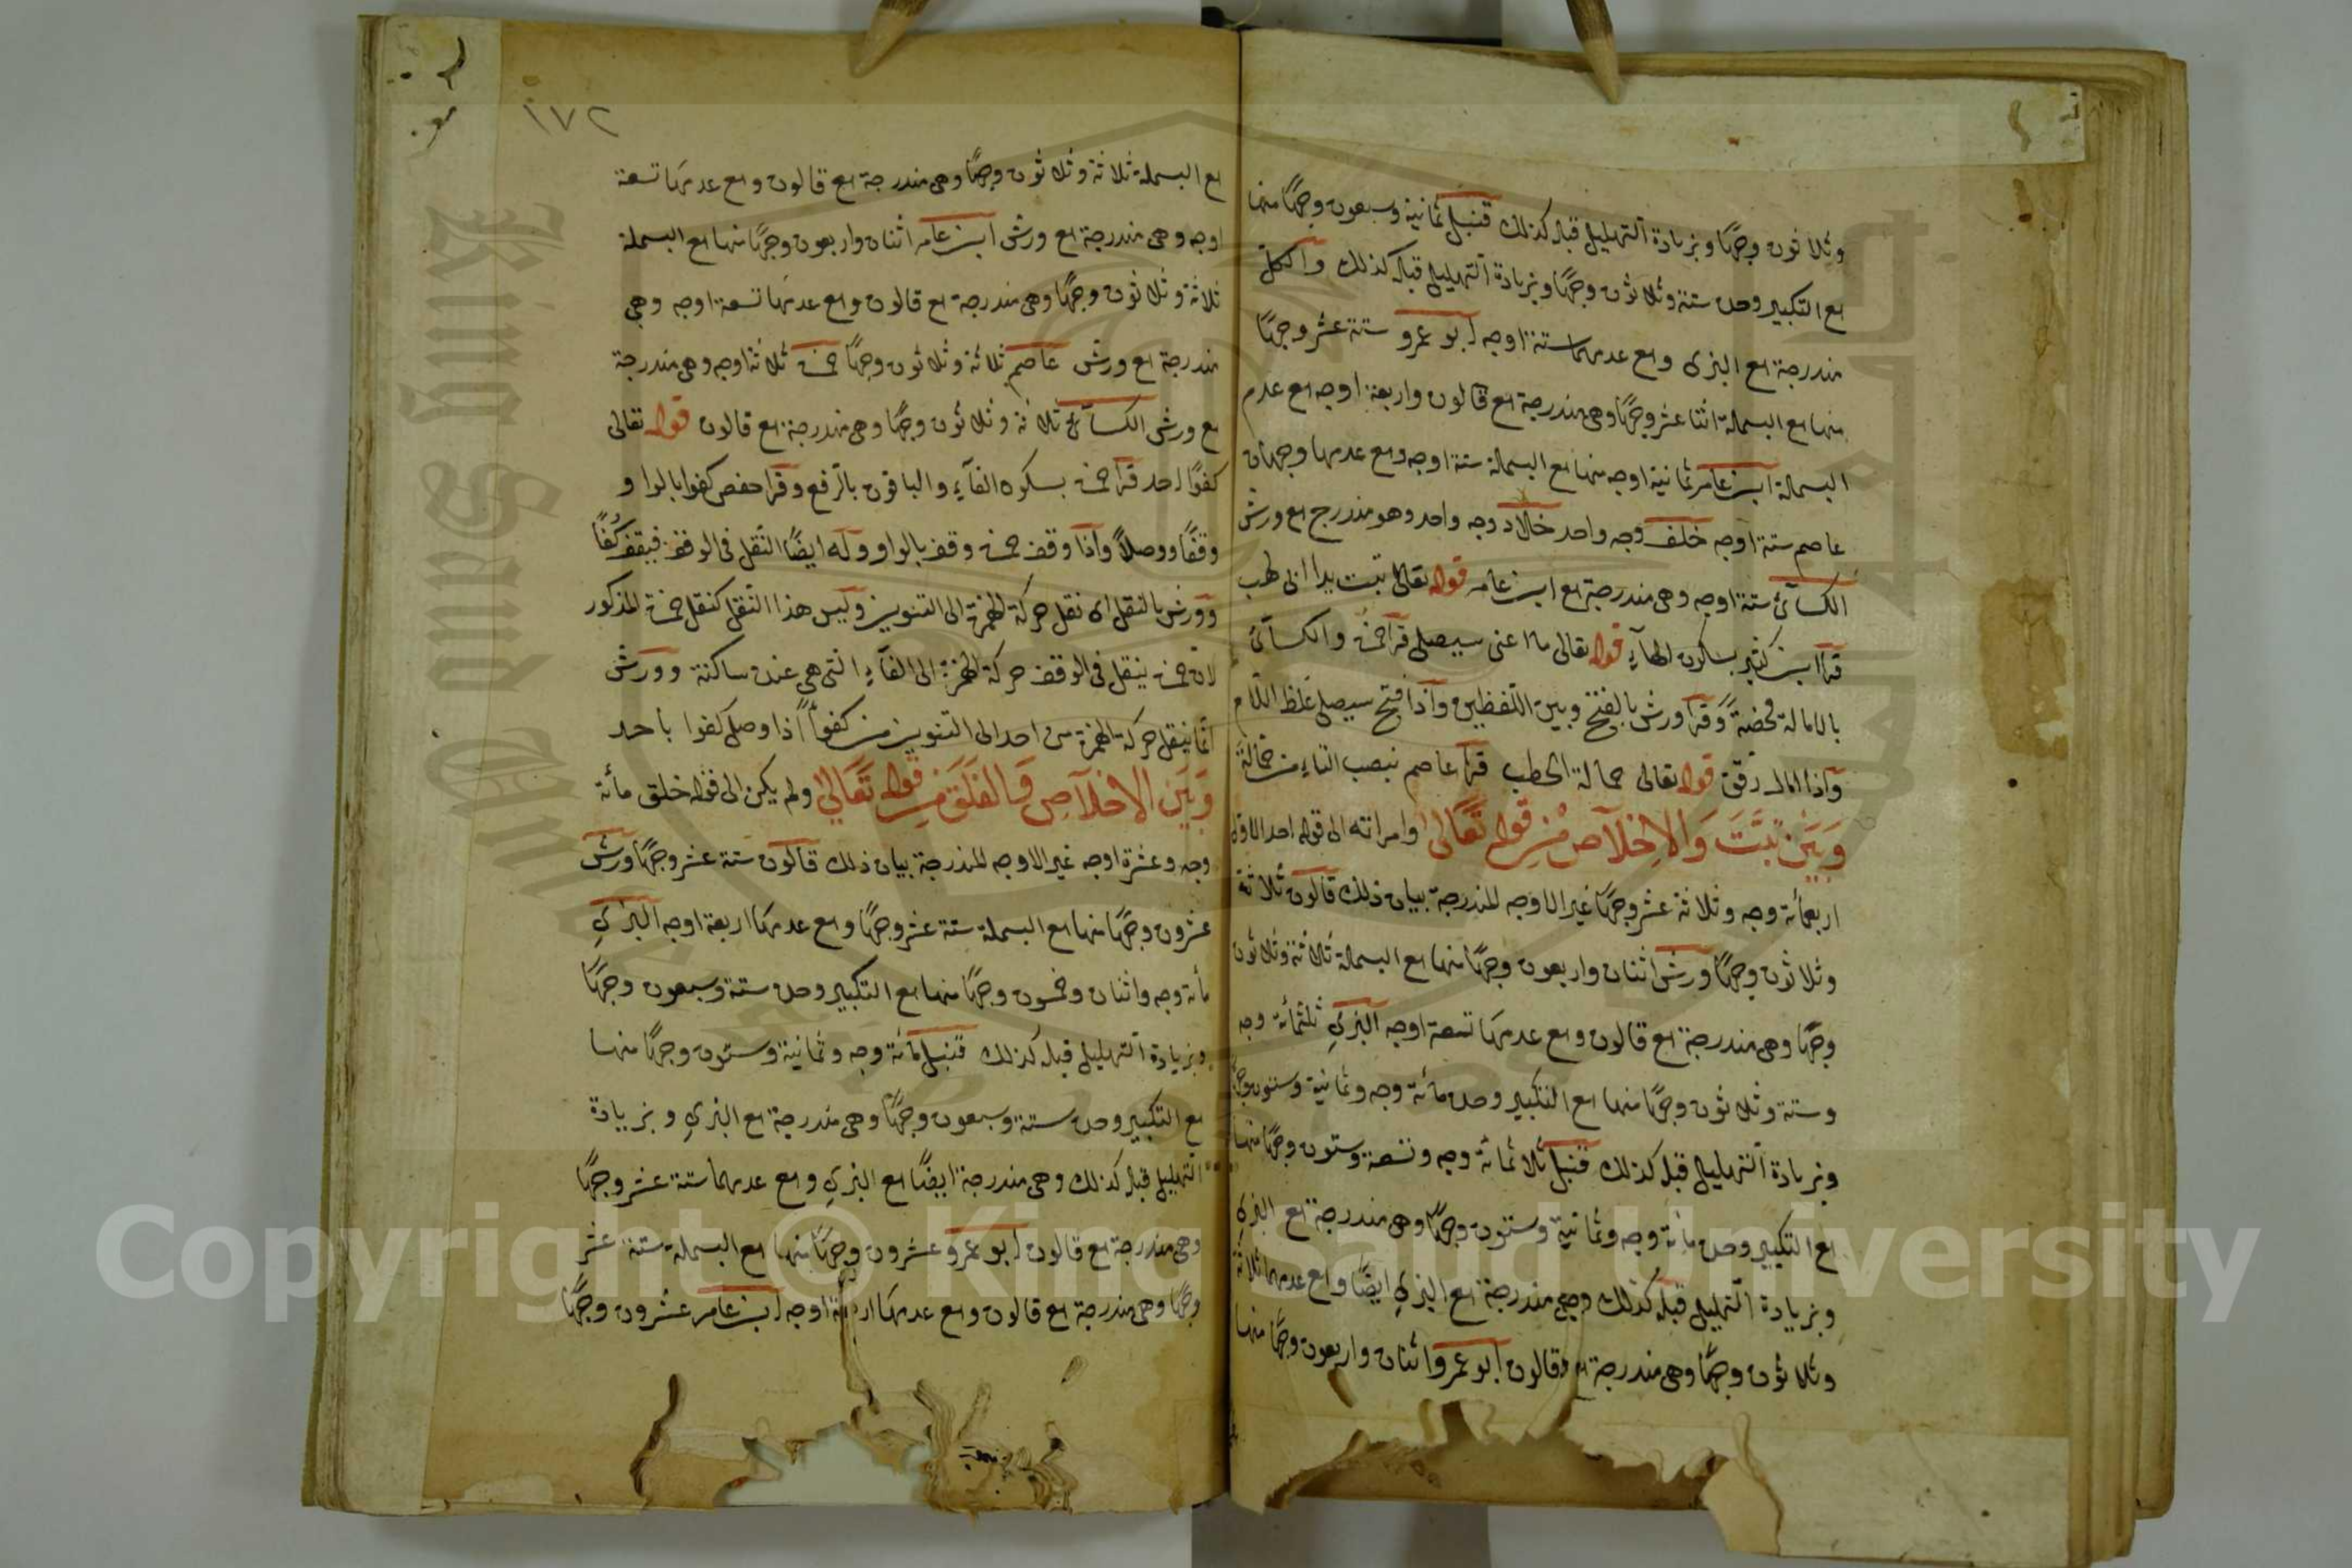 وثلاثون وجها وبزيادة التهليل قبله كذلك قنبل ثمانية وسبعون وجها منها
مع التكبير وحده ستة وثلاثون وجها وبزيادة التهليل قبله كذلك والكل
مندرجة مع البزى ومع عدمهما ستة اوجه ابو عمرو ستة عشر وجها
منها مع البسملة اثنا عشر وجها وهى مندرجة مع قالون واربعة اوجه مع عدم
البسملة ابن عامر ثمانية اوجه منها مع البسملة ستة اوجه ومع عدمها وجهان
عاصم ستة اوجه خلف وجه واحد خلاد وجه واحد وهو مندرج مع ورش
الكسآئ ستة اوجه وهى مندرجة مع ابن عامر قوله تعالى تبت يدا ابى لهب
قرا ابن كثير بسكون الهآء قوله تعالى ما اغنى سيصلى قرا حمزة والكسآئ
بالامالة محضة وقرا ورش بالفتح وبين اللفظين واذا فتح سيصلى غلظ اللام
واذا امال رقق قوله تعالى حمالة الحطب قرا عاصم بنصب التاء من حمالة
وَبَيْنَ تَبَّتَ وَالاِخْلَاصِ مِنْ قوله تَعَالى وامراته الى قوله احد الاوله
اربعمائة وجه وثلاثة عشر وجها غير الاوجه المندرجة بيان ذلك قالون ثلاثة
وثلاثون وجها ورش اثنان واربعون وجها منها مع البسملة ثلاثة وثلاثون
وجها وهى مندرجة مع قالون ومع عدمها تسعة اوجه البزي ثلثمائة وجه
وستة وثلاثون وجها منها مع التكبير وحده مائة وجه وثمانية وستون وجها
وبزيادة التهليل قبله كذلك قنبل ثلاثمائة وجه وتسعة وستون وجها منها
مع التكبير وحده مائة وجه وثمانية وستون وجها وهى مندرجة مع البزي
وبزيادة التهليل قبله كذلك وهى مندرجة مع البزي ايضا ومع عدمهما ثلاثة
وثلاثون وجها وهى مندرجة مع قالون ابو عمرو اثنان واربعون وجها منها
١٧٢
مع البسملة ثلاثة وثلاثون وجها وهى مندرجة مع قالون ومع عدمها تسعة
اوجه وهى مندرجة مع ورش ابن عامر اثنان واربعون وجها منها مع البسملة
ثلاثة وثلاثون وجها وهى مندرجة مع قالون ومع عدمها تسعة اوجه وهى
مندرجة مع ورش عاصم ثلاثة وثلاثون وجها حمزة ثلاثة اوجه وهى مندرجة
مع ورش الكسآئ ثلاثة وثلاثون وجها وهى مندرجة مع قالون قوله تعالى
كفوًا احد قرا حمزة بسكون الفآء والباقون بالرفع وقرا حفص كفوا بالواو
وقفًا ووصلاً واذا وقف حمزة وقف بالواو وله ايضًا النقل فى الوقف فيقف كُفًا
وورش بالنقل اى نقل حركة الهمزة الى التنوين وليس هذا النقل كنقل حمزة المذكور
لان حمزة ينقل فى الوقف حركة الهمزة الى الفآء التى هى عنده ساكنة وورش
انما ينقل حركة الهمزة من احد الى التنوين من كفوًا اذا وصل كفوا باحد
وَبَيْنَ الاخلَاصِ وَالفَلَقِ مِن قوله تَعَالى ولم يكن الى قوله خلق مائة
وجه وعشرة اوجه غير الاوجه المندرجة بيان ذلك قالون ستة عشر وجها ورش
عشرون وجها منها مع البسملة ستة عشر وجها ومع عدمها اربعة اوجه البزي
مأئة وجه واثنان وخمسون وجها منها مع التكبير وحده ستة وسبعون وجها
وبزيادة التهليل قبله كذلك قنبل مائة وجه وثمانية وستون وجها منها
مع التكبير وحده ستة وسبعون وجها وهى مندرجة مع البزي وبزيادة
التهليل قبله كذلك وهى مندرجة ايضًا مع البزي ومع عدمهما ستة عشر وجها
وهى مندرجة مع قالون ابو عمرو عشرون وجها منها مع البسملة ستة عشر
وجها وهى مندرجة مع قالون ومع عدمها اربعة اوجه ابن عامر عشرون وجها
Copyright © King Saud University